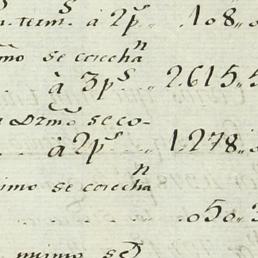 term.s à 2p.s .. 108,,
mo se cosechan
à 3p.s .. 2.615,,5
Dzmo se co-
... à 2p.s .. 1.278,,
imo se cosechan
... .. 050,,3
mismo se